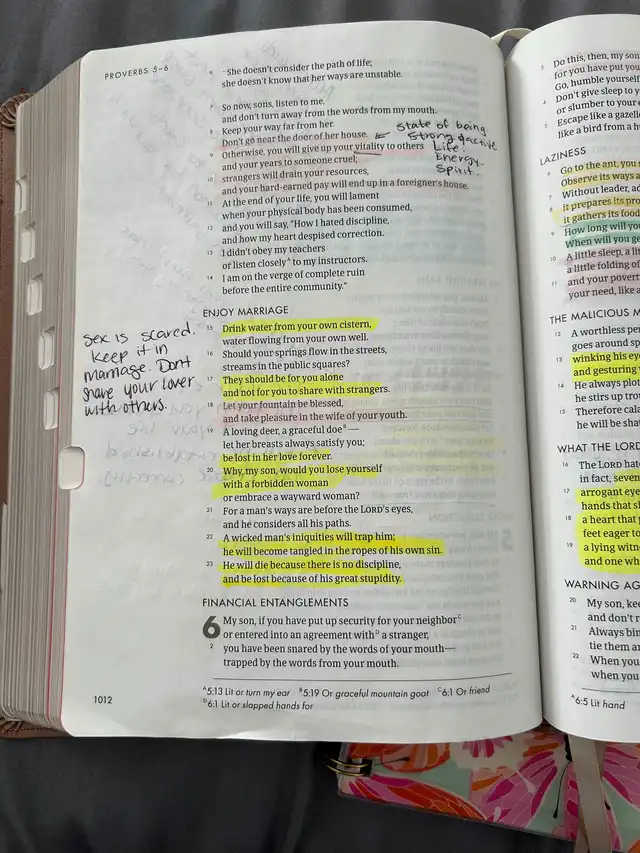 PROVERBS 5–6
6 She doesn't consider the path of life;
she doesn't know that her ways are unstable.
7 So now, sons, listen to me,
and don't turn away from the words from my mouth.
8 Keep your way far from her.
Don't go near the door of her house.
9 Otherwise, you will give up your vitality to others
and your years to someone cruel;
10 strangers will drain your resources,
and your hard-earned pay will end up in a foreigner's house.
11 At the end of your life, you will lament
when your physical body has been consumed,
12 and you will say, "How I hated discipline,
and how my heart despised correction.
13 I didn't obey my teachers
or listen closely^A to my instructors.
14 I am on the verge of complete ruin
before the entire community."
State of being
Strong & active
Life.
Energy.
Spirit.
ENJOY MARRIAGE
15 Drink water from your own cistern,
water flowing from your own well.
16 Should your springs flow in the streets,
streams in the public squares?
17 They should be for you alone
and not for you to share with strangers.
18 Let your fountain be blessed,
and take pleasure in the wife of your youth.
19 A loving deer, a graceful doe^B—
let her breasts always satisfy you;
be lost in her love forever.
20 Why, my son, would you lose yourself
with a forbidden woman
or embrace a wayward woman?
21 For a man's ways are before the LORD's eyes,
and he considers all his paths.
22 A wicked man's iniquities will trap him;
he will become tangled in the ropes of his own sin.
23 He will die because there is no discipline,
and be lost because of his great stupidity.
sex is scared.
keep it in
marriage. Dont
share your lover
with others.
FINANCIAL ENTANGLEMENTS
6 My son, if you have put up security for your neighbor^C
or entered into an agreement with^D a stranger,
2 you have been snared by the words of your mouth—
trapped by the words from your mouth.
^A5:13 Lit or turn my ear ^B5:19 Or graceful mountain goat ^C6:1 Or friend
^D6:1 Lit or slapped hands for
1012
3 Do this, then, my son
for you have put you
Go, humble yourself
4 Don't give sleep to y
or slumber to your e
5 Escape like a gazel
like a bird from a
LAZINESS
6 Go to the ant, you
Observe its ways a
7 Without leader, ad
8 it prepares its pro
it gathers its food
9 How long will you
When will you ge
10 A little sleep, a lit
a little folding of
11 and your povert
your need, like a
THE MALICIOUS M
12 A worthless pe
goes around sp
13 winking his ey
and gesturing
14 He always plo
he stirs up trou
15 Therefore cala
he will be shat
WHAT THE LORD
16 The LORD hat
in fact, seven
17 arrogant eye
hands that s
18 a heart that
feet eager to
19 a lying witn
and one wh
WARNING AG
20 My son, kee
and don't r
21 Always bin
tie them ar
22 When you
when you
^A6:5 Lit hand